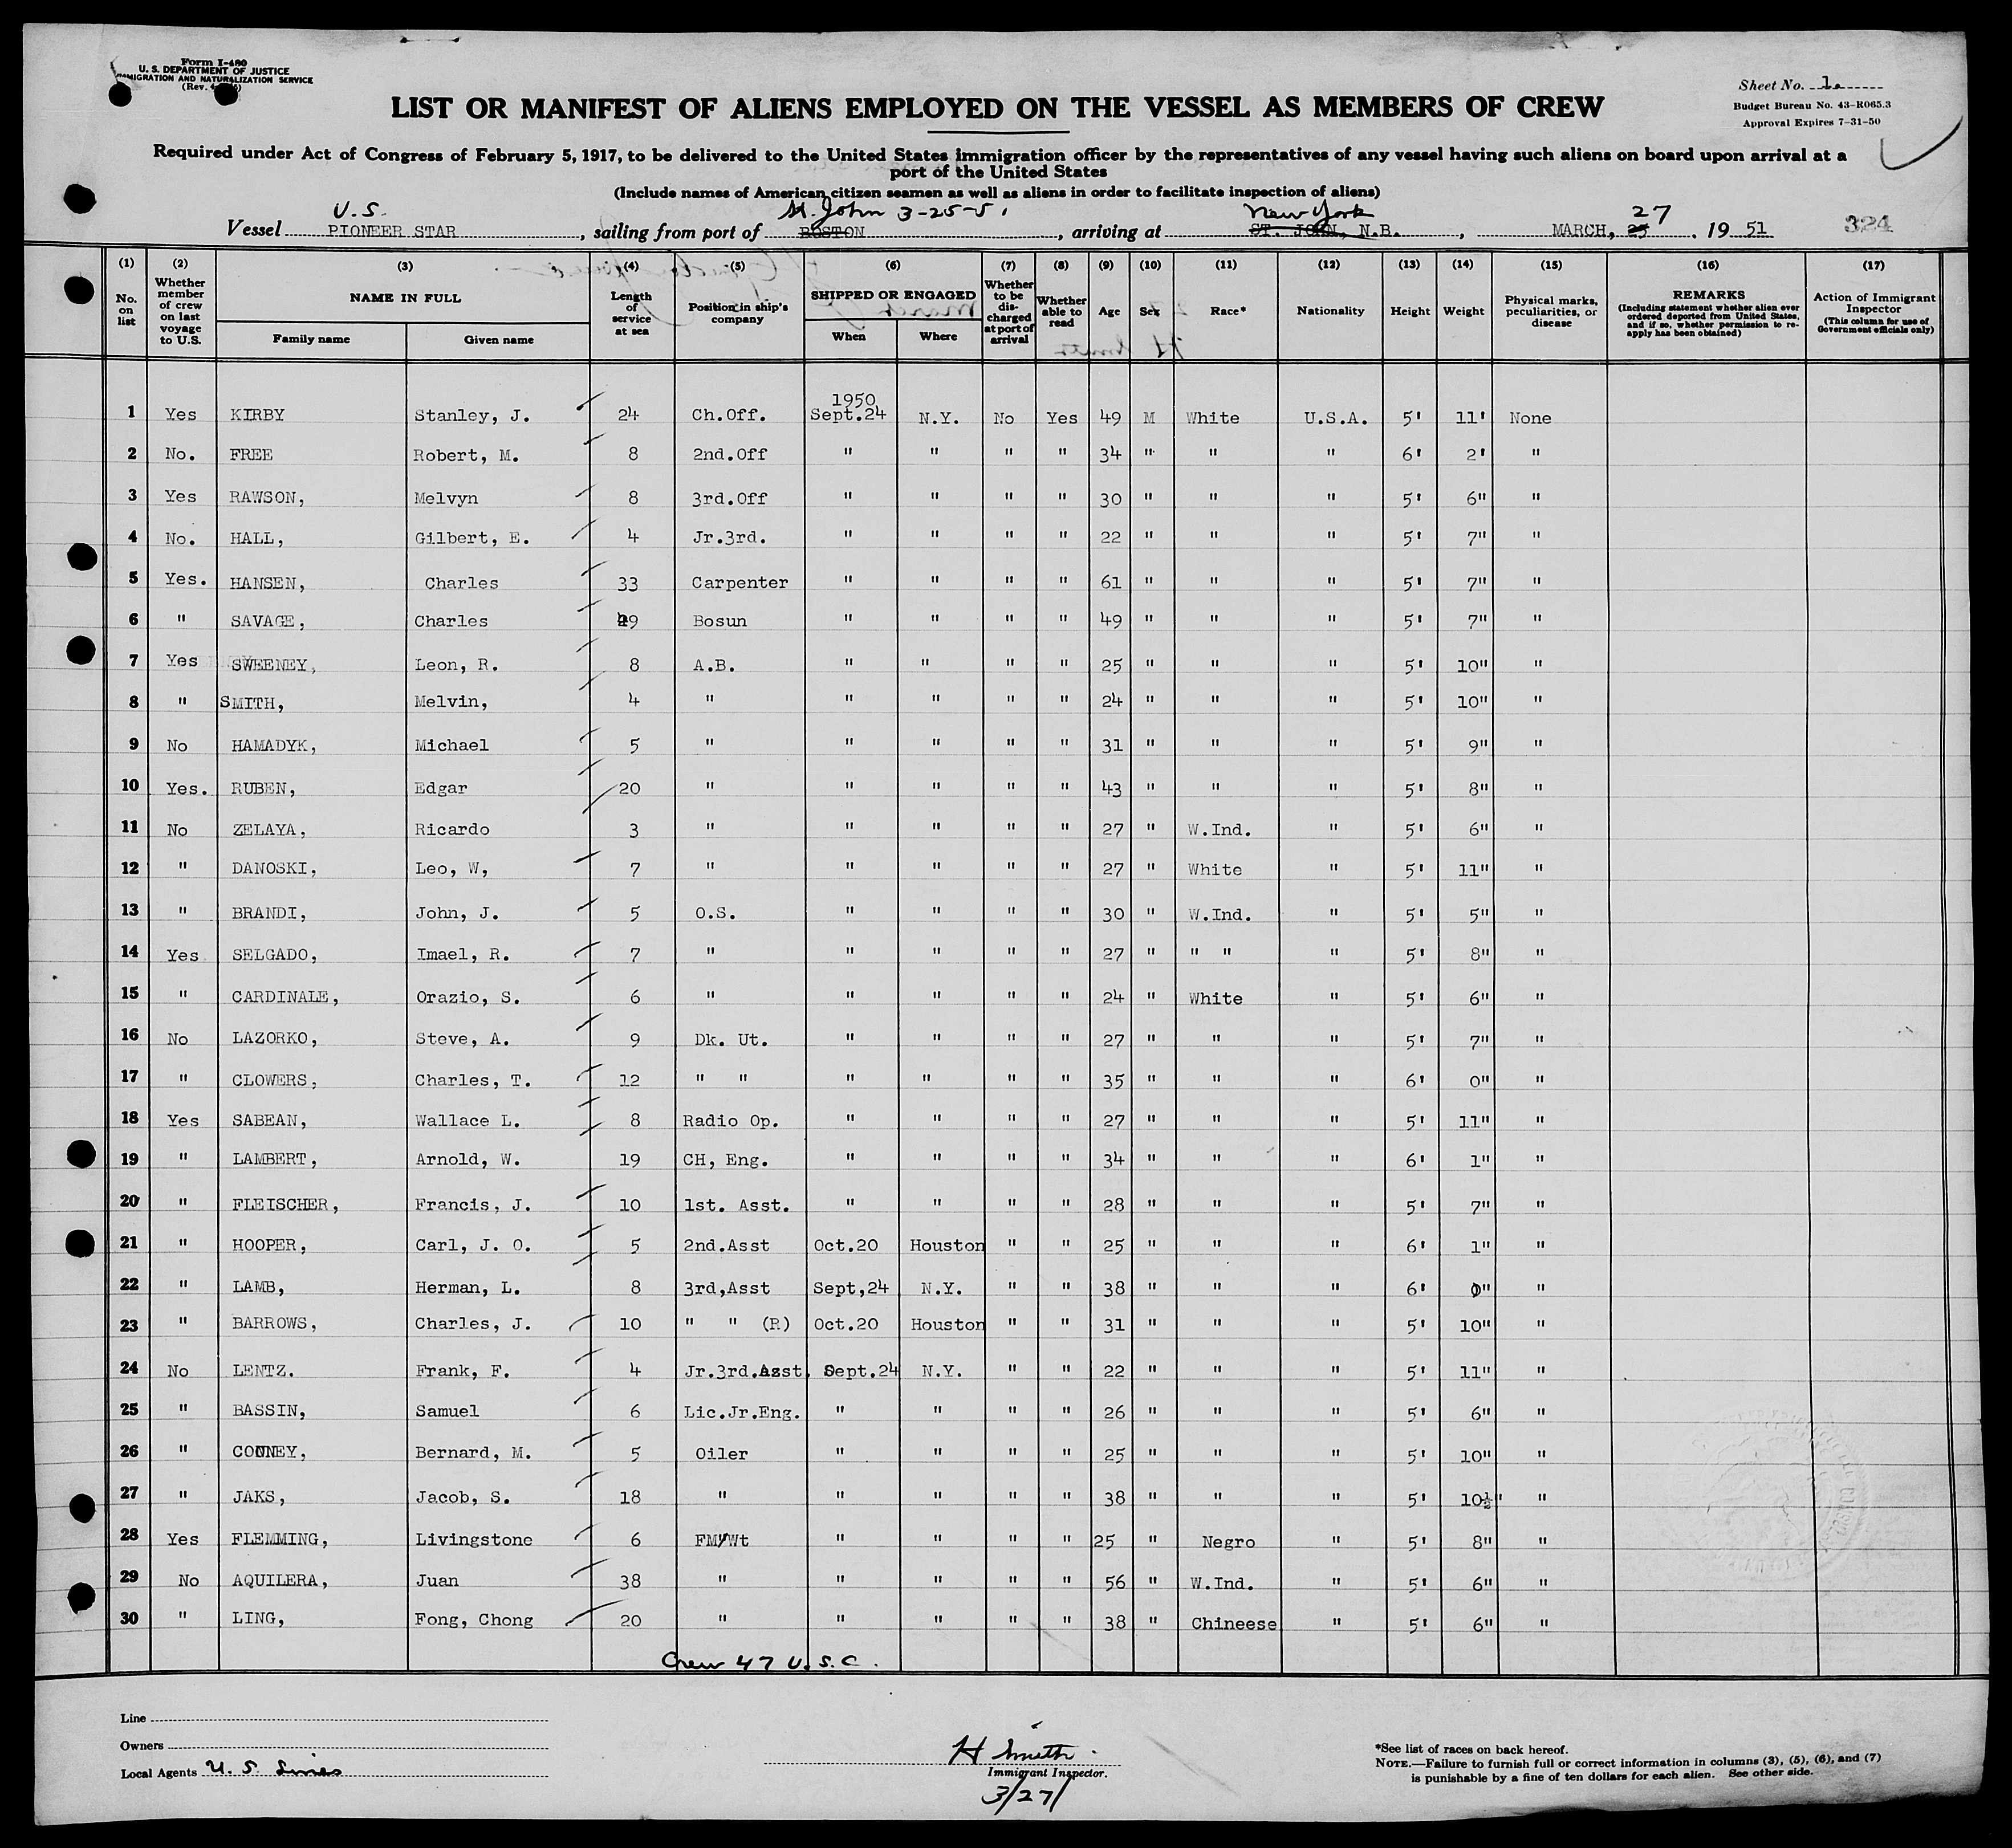 Form I-480
U. S. DEPARTMENT OF JUSTICE
IMMIGRATION AND NATURALIZATION SERVICE
(Rev.
Sheet No. 1.
Budget Bureau No. 43-R065.3
Approval Expires 7-31-50
LIST OR MANIFEST OF ALIENS EMPLOYED ON THE VESSEL AS MEMBERS OF CREW
Required under Act of Congress of February 5, 1917, to be delivered to the United States immigration officer by the representatives of any vessel having such aliens on board upon arrival at a
port of the United States
(Include names of American citizen seamen as well as aliens in order to facilitate inspection of aliens)
U.S. St. John 3-25-51 New York 27
Vessel PIONEER STAR, sailing from port of BOSTON, arriving at ST. JOHN, N.B., MARCH, 25, 19 51 324
(1) (2) (3) (4) (5) (6) (7) (8) (9) (10) (11) (12) (13) (14) (15) (16) (17)
No. on list Whether member of crew on last voyage to U.S. NAME IN FULL Family name Given name Length of service at sea Position in ship's company SHIPPED OR ENGAGED When Where Whether to be discharged at port of arrival Whether able to read Age Sex Race* Nationality Height Weight Physical marks, peculiarities, or disease REMARKS (Including statement whether alien ever ordered deported from United States, and if so, whether permission to reapply has been obtained) Action of Immigrant Inspector (This column for use of Government officials only)
1950
1 Yes KIRBY Stanley, J. 24 Ch.Off. Sept.24 N.Y. No Yes 49 M White U.S.A. 5' 11' None
2 No. FREE Robert, M. 8 2nd.Off " " " " 34 " " " 6' 2' "
3 Yes RAWSON, Melvyn 8 3rd.Off " " " " 30 " " " 5' 6" "
4 No. HALL, Gilbert, E. 4 Jr.3rd. " " " " 22 " " " 5' 7" "
5 Yes. HANSEN, Charles 33 Carpenter " " " " 61 " " " 5' 7" "
6 " SAVAGE, Charles 29 Bosun " " " " 49 " " " 5' 7" "
7 Yes SWEENEY, Leon, R. 8 A.B. " " " " 25 " " " 5' 10" "
8 " SMITH, Melvin, 4 " " " " " 24 " " " 5' 10" "
9 No HAMADYK, Michael 5 " " " " " 31 " " " 5' 9" "
10 Yes. RUBEN, Edgar 20 " " " " " 43 " " " 5' 8" "
11 No ZELAYA, Ricardo 3 " " " " " 27 " W.Ind. " 5' 6" "
12 " DANOSKI, Leo, W, 7 " " " " " 27 " White " 5' 11" "
13 " BRANDI, John, J. 5 O.S. " " " " 30 " W.Ind. " 5' 5" "
14 Yes SELGADO, Imael, R. 7 " " " " " 27 " " " " 5' 8" "
15 " CARDINALE, Orazio, S. 6 " " " " " 24 " White " 5' 6" "
16 No LAZORKO, Steve, A. 9 Dk. Ut. " " " " 27 " " " 5' 7" "
17 " CLOWERS, Charles, T. 12 " " " " " " 35 " " " 6' 0" "
18 Yes SABEAN, Wallace L. 8 Radio Op. " " " " 27 " " " 5' 11" "
19 " LAMBERT, Arnold, W. 19 CH, Eng. " " " " 34 " " " 6' 1" "
20 " FLEISCHER, Francis, J. 10 1st. Asst. " " " " 28 " " " 5' 7" "
21 " HOOPER, Carl, J. O. 5 2nd.Asst Oct.20 Houston " " 25 " " " 6' 1" "
22 " LAMB, Herman, L. 8 3rd,Asst Sept,24 N.Y. " " 38 " " " 6' 0" "
23 " BARROWS, Charles, J. 10 " " (R) Oct.20 Houston " " 31 " " " 5' 10" "
24 No LENTZ. Frank, F. 4 Jr.3rd.Asst. Sept.24 N.Y. " " 22 " " " 5' 11" "
25 " BASSIN, Samuel 6 Lic.Jr.Eng. " " " " 26 " " " 5' 6" "
26 " COONEY, Bernard, M. 5 Oiler " " " " 25 " " " 5' 10" "
27 " JAKS, Jacob, S. 18 " " " " " 38 " " " 5' 10½" "
28 Yes FLEMMING, Livingstone 6 FM/Wt " " " " 25 " Negro " 5' 8" "
29 No AQUILERA, Juan 38 " " " " " 56 " W.Ind. " 5' 6" "
30 " LING, Fong, Chong 20 " " " " " 38 " Chineese " 5' 6" "
Crew 47 U.S.C.
Line
Owners
Local Agents U. S. Lines
H Smith
Immigrant Inspector.
3/27/
*See list of races on back hereof.
NOTE.—Failure to furnish full or correct information in columns (3), (5), (6), and (7)
is punishable by a fine of ten dollars for each alien. See other side.